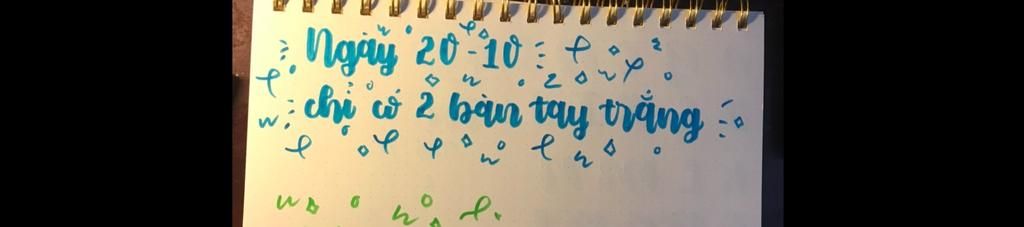 Ngày 20-10
chỉ có 2 bàn tay trắng